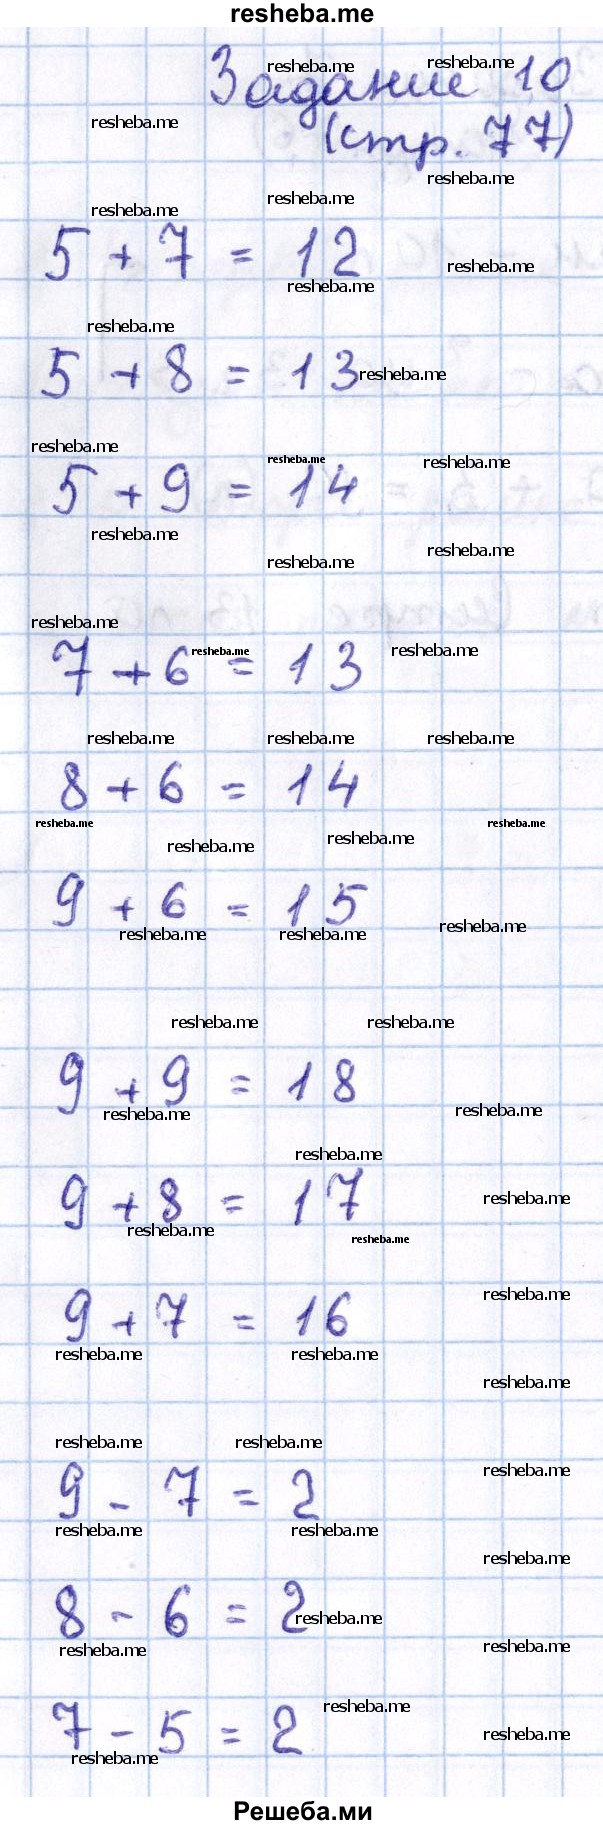 resheba.me
Задание 10
(стр. 77)
5 + 7 = 12
5 + 8 = 13
5 + 9 = 14
7 + 6 = 13
8 + 6 = 14
9 + 6 = 15
9 + 9 = 18
9 + 8 = 17
9 + 7 = 16
9 - 7 = 2
8 - 6 = 2
7 - 5 = 2
Решеба.ми